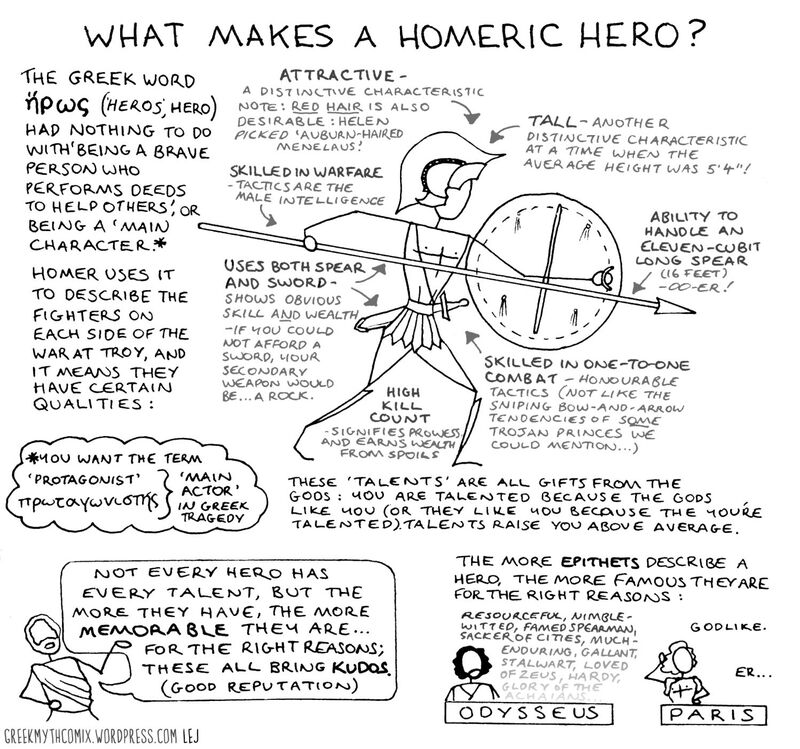 WHAT MAKES A HOMERIC HERO?
THE GREEK WORD
ἥρως ('HEROS', HERO)
HAD NOTHING TO DO
WITH 'BEING A BRAVE
PERSON WHO
PERFORMS DEEDS
TO HELP OTHERS', OR
BEING A 'MAIN
CHARACTER.'*
HOMER USES IT
TO DESCRIBE THE
FIGHTERS ON
EACH SIDE OF THE
WAR AT TROY, AND
IT MEANS THEY
HAVE CERTAIN
QUALITIES:
ATTRACTIVE-
A DISTINCTIVE CHARACTERISTIC
NOTE: RED HAIR IS ALSO
DESIRABLE: HELEN
PICKED 'AUBURN-HAIRED
MENELAUS!'
TALL-ANOTHER
DISTINCTIVE CHARACTERISTIC
AT A TIME WHEN THE
AVERAGE HEIGHT WAS 5'4"!
SKILLED IN WARFARE
-TACTICS ARE THE
MALE INTELLIGENCE
ABILITY TO
HANDLE AN
ELEVEN-CUBIT
LONG SPEAR
(16 FEET)
-OO-ER!
USES BOTH SPEAR
AND SWORD-
SHOWS OBVIOUS
SKILL AND WEALTH
-IF YOU COULD
NOT AFFORD A
SWORD, YOUR
SECONDARY
WEAPON WOULD
BE...A ROCK.
HIGH
KILL
COUNT
-SIGNIFIES PROWESS
AND EARNS WEALTH
FROM SPOILS
SKILLED IN ONE-TO-ONE
COMBAT - HONOURABLE
TACTICS (NOT LIKE THE
SNIPING BOW-AND-ARROW
TENDENCIES OF SOME
TROJAN PRINCES WE
COULD MENTION...)
*YOU WANT THE TERM
'PROTAGONIST'
πρωταγωνιστής
'MAIN
ACTOR'
IN GREEK
TRAGEDY
THESE 'TALENTS' ARE ALL GIFTS FROM THE
GODS: YOU ARE TALENTED BECAUSE THE GODS
LIKE YOU (OR THEY LIKE YOU BECAUSE THE YOU'RE
TALENTED). TALENTS RAISE YOU ABOVE AVERAGE.
NOT EVERY HERO HAS
EVERY TALENT, BUT THE
MORE THEY HAVE, THE MORE
MEMORABLE THEY ARE...
FOR THE RIGHT REASONS;
THESE ALL BRING KUDOS.
(GOOD REPUTATION)
THE MORE EPITHETS DESCRIBE A
HERO, THE MORE FAMOUS THEY ARE
FOR THE RIGHT REASONS:
RESOURCEFUL, NIMBLE-
WITTED, FAMED SPEARMAN,
SACKER OF CITIES, MUCH-
ENDURING, GALLANT,
STALWART, LOVED
OF ZEUS, HARDY,
GLORY OF THE
ACHAIANS
ODYSSEUS
GODLIKE.
ER...
PARIS
GREEKMYTHCOMIX.WORDPRESS.COM LEJ